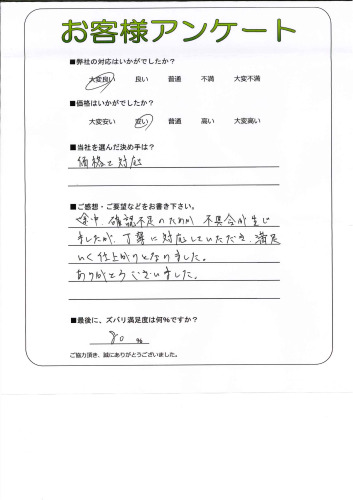 お客様アンケート
■弊社の対応はいかがでしたか?
大変良い 良い 普通 不満 大変不満
■価格はいかがでしたか?
大変安い 安い 普通 高い 大変高い
■当社を選んだ決め手は?
価格と対応
■ご感想・ご要望などをお書き下さい。
途中、確認不足のためか 不具合が生じ
ましたが、丁寧に対応していただき、満足
いく仕上がりとなりました。
ありがとうございました。
■最後に、ズバリ満足度は何%ですか?
80 %
ご協力頂き、誠にありがとうございました。